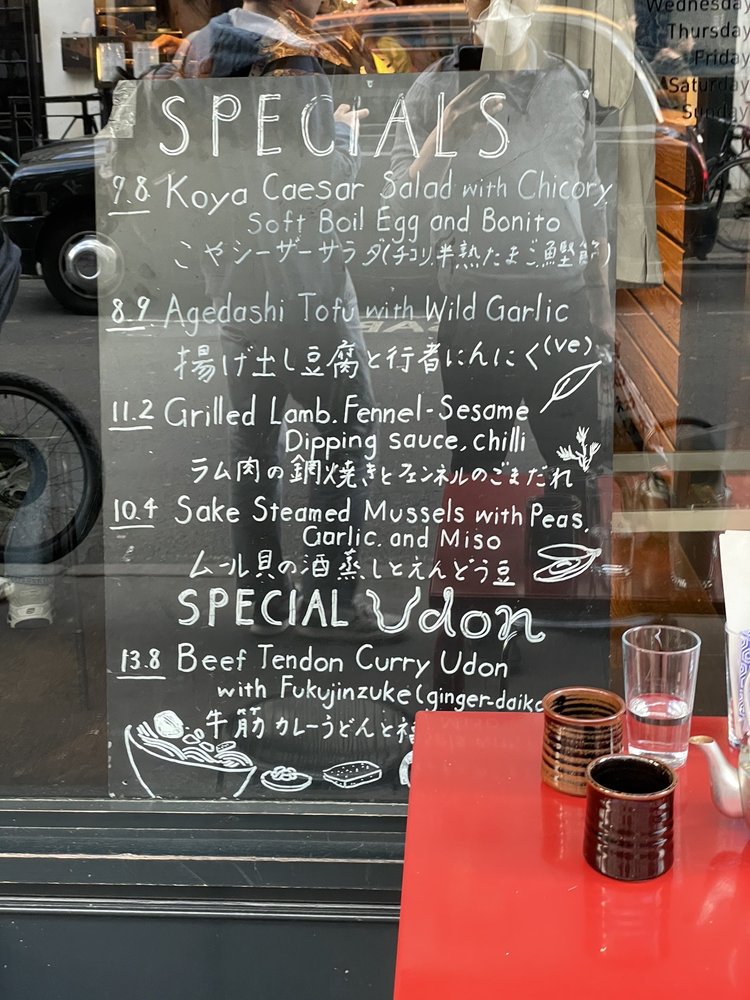 Wednesday
Thursday
Friday
Saturday
Sunday
SPECIALS
9.8 Koya Caesar Salad with Chicory
Soft Boil Egg and Bonito
こやシーザーサラダ(チコリ.半熟たまご.鰹節)
8.9 Agedashi Tofu with Wild Garlic
揚げ出し豆腐と行者にんにく(ve)
11.2 Grilled Lamb. Fennel-Sesame
Dipping sauce, chilli
ラム肉の網焼きとフェンネルのごまだれ
10.4 Sake Steamed Mussels with Peas,
Garlic, and Miso
ムール貝の酒蒸しとえんどう豆
SPECIAL Udon
13.8 Beef Tendon Curry Udon
with Fukujinzuke (ginger-daiko
牛筋カレーうどんと福